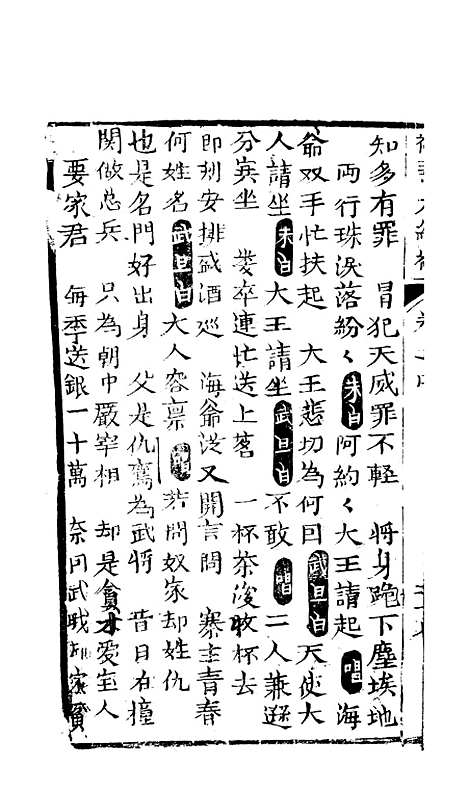 知多有罪　冒犯天威罪不輕　将身跪下塵埃地
両行珠淚落紛〻　末白　阿約〻大王請起　唱　海
爺双手忙扶起　大王悲切為何因　武旦白　天使大
人請坐　末白　大王請坐　武旦白　不敢　唱　二人兼遜
分賓坐　婁卒連忙送上茗　一杯茶後收杯去
即刻安排盛酒巡　海爺泛又開言問　寨主青春
何姓名　武旦白　大人容禀　唱　若問奴家却姓仇
也是名門好出身　父是仇鸞為武将　昔日在撞
関做总兵　只為朝中嚴宰相　却是貪才愛宝人
要家君　每季送銀一十萬　奈何武戝却家貧